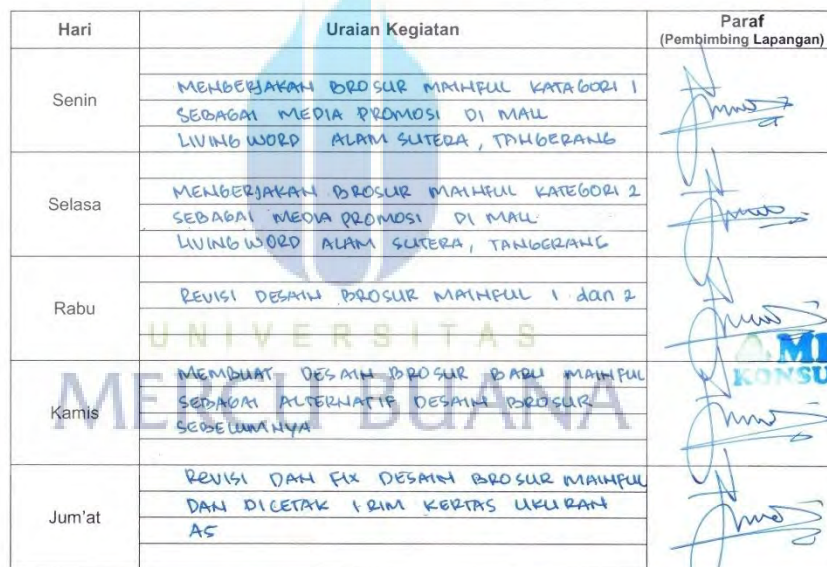 Hari Uraian Kegiatan Paraf
(Pembimbing Lapangan)
Senin
MENGERJAKAN BROSUR MAINFUL KATAGORI 1
SEBAGAI MEDIA PROMOSI DI MALL
LIVING WORD ALAM SUTERA, TANGERANG
Selasa
MENGERJAKAN BROSUR MAINFUL KATEGORI 2
SEBAGAI MEDIA PROMOSI DI MALL
LIVING WORD ALAM SUTERA, TANGERANG
Rabu
REVISI DESAIN BROSUR MAINFUL 1 dan 2
UNIVERSITAS
MERCU BUANA
Kamis
MEMBUAT DESAIN BROSUR BARU MAINFUL
SEBAGAI ALTERNATIF DESAIN BROSUR
SEBELUMNYA
KONSU
Jum'at
REVISI DAN FIX DESAIN BROSUR MAINFUL
DAN DICETAK 1 RIM KERTAS UKURAN
A5